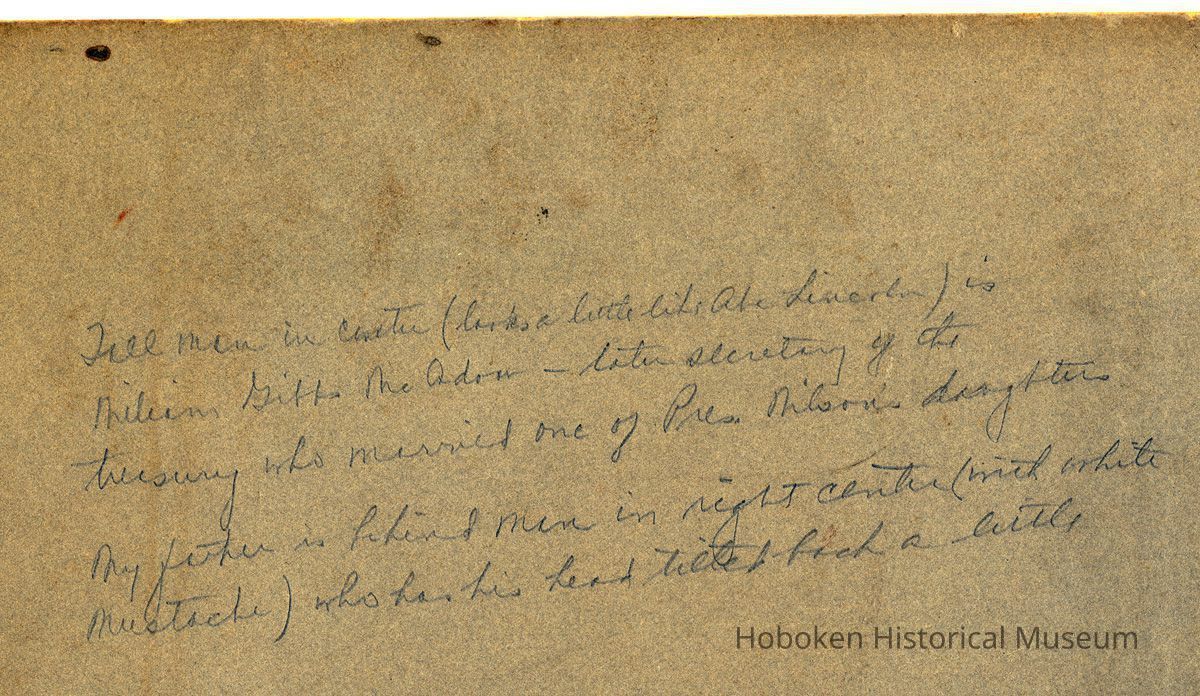 Tall man in center (looks a little like Abe Lincoln) is
William Gibbs McAdoo – later secretary of the
treasury who married one of Pres. Wilson's daughters
My father is behind man in right center (with white
Mustache) who has his head tilted back a little
Hoboken Historical Museum